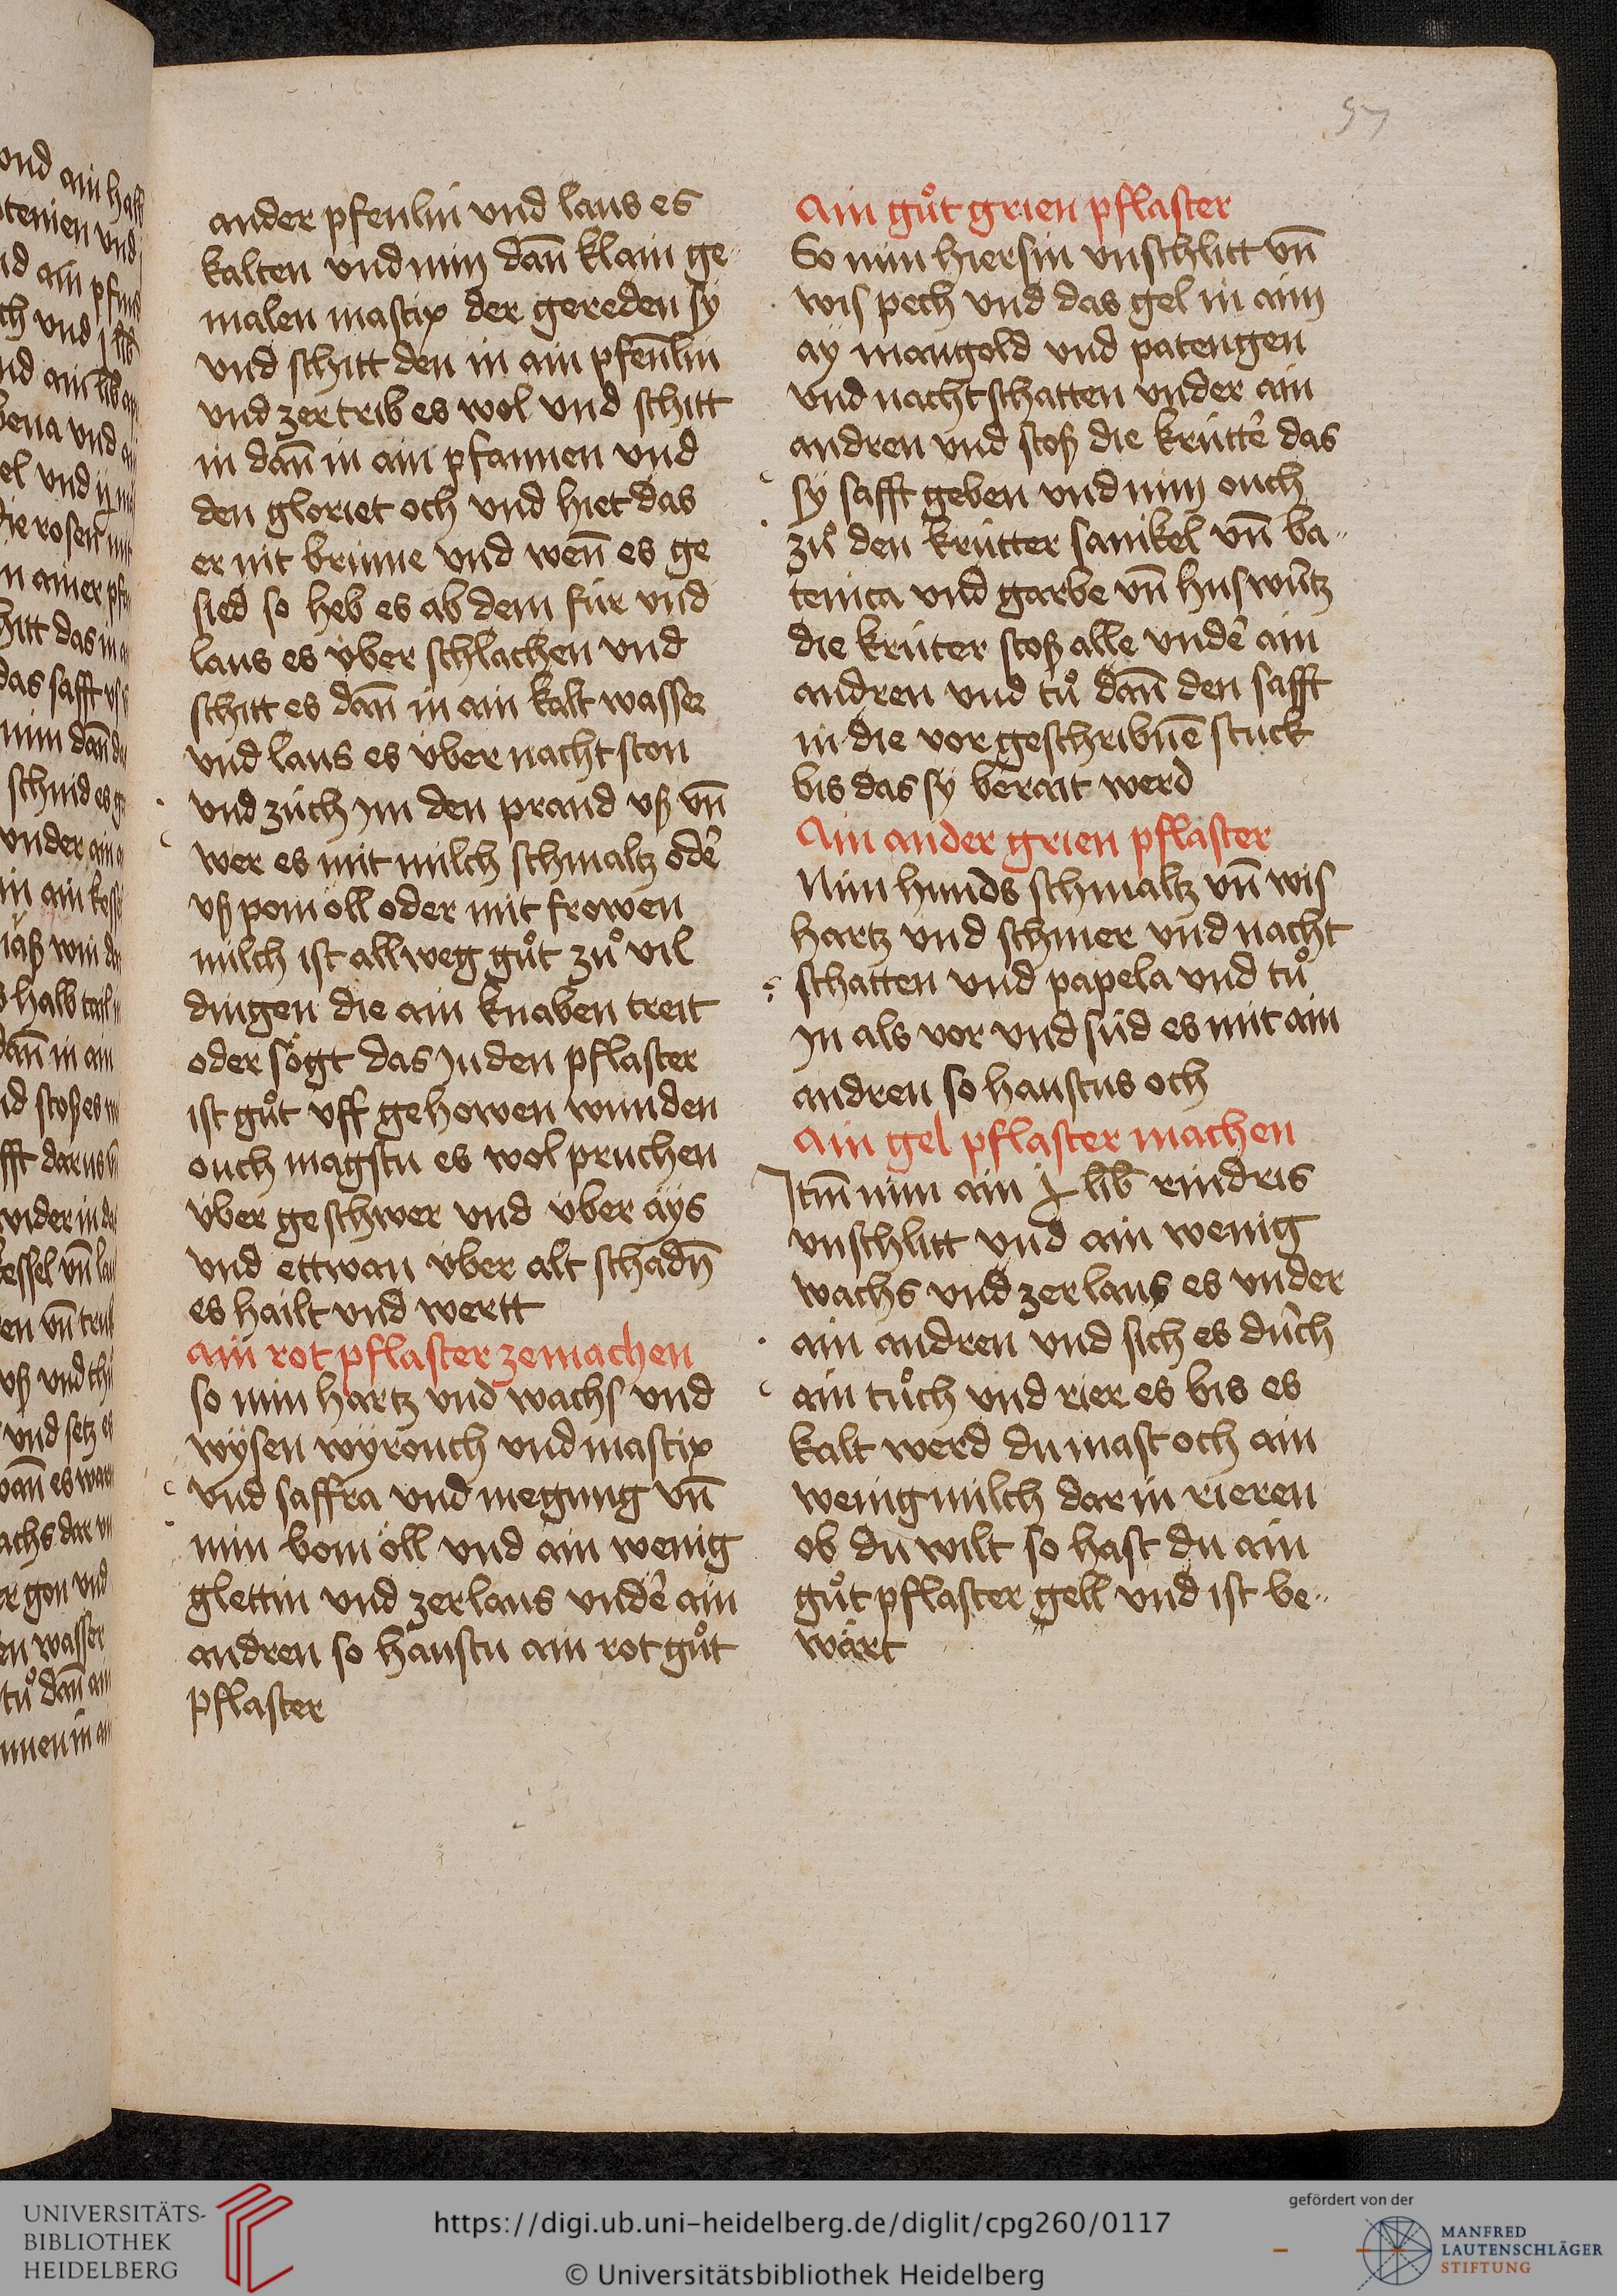 57
ander pfenlin vnd laus es
kalten vnd nim dan̄ klain ge
malen mastix der gereden sy
vnd schitt den in ain pfen̄lin
vnd zertrib es wol vnd schitt
in dan̄ in ain pfannen vnd
den gloriet och vnd hiet das
er nit brinne vnd wen̄ es ge
sied so heb es ab dem für vnd
laus es über schlachen vnd
schitt es dan̄ in ain kalt wasser
vnd laus es über nacht ston
vnd züch im den prand vß vn̄
wer es mit milch schmaltz oder
vß pom öll oder mit frowen
milch ist allweg gůt zů vil
dingen die ain knaben treit
oder sögt das Inden pflaster
ist gůt vff gehowen wunden
ouch magstu es wol pruchen
über geschwer vnd über ays
vnd ettwan über alt schadn̄
es hailt vnd wertt
ain rot pflaster ze machen
so nim hartz vnd wachs vnd
wysen wyrouch vnd mastix
vnd saffra vnd megung vn̄
nim bom öll vnd ain wenig
glettin vnd zerlaus vnder ain
andren so haustu ain rot gůt
pflaster
Ain gůt grien pflaster
So nim hiersin vnschlitt vn̄
wis pech vnd das gel in aim
ay mangold vnd patengen
vnd nachtschatten vnder ain
andren vnd stoß die krütter das
sy safft geben vnd nim ouch
zů den krütter sanikel vn̄ ba-
tenica vnd garbe vn̄ huswurtz
die krüter stoß alle vnder ain
andren vnd tů dan̄ den safft
in die vorgeschribnē stuck
bis das sy berait werd
Ain ander grien pflaster
Nim hunds schmaltz vn̄ wis
hartz vnd schmer vnd nacht
schatten vnd papela vnd tů
In als vor vnd süd es mit ain
andren so haustus och
Ain gel pflaster machen
Itm̄ nim ain lib rindris
vnschlitt vnd ain wenig
wachs vnd zerlaus es vnder
ain andren vnd sich es durch
ain tůch vnd rier es bis es
kalt werd du mast och ain
wenig milch dar in rieren
ob du wilt so hast du ain
gůt pflaster gell vnd ist be-
wärt
UNIVERSITÄTS-
BIBLIOTHEK
HEIDELBERG
https://digi.ub.uni-heidelberg.de/diglit/cpg260/0117
© Universitätsbibliothek Heidelberg
gefördert von der
MANFRED
LAUTENSCHLÄGER
STIFTUNG